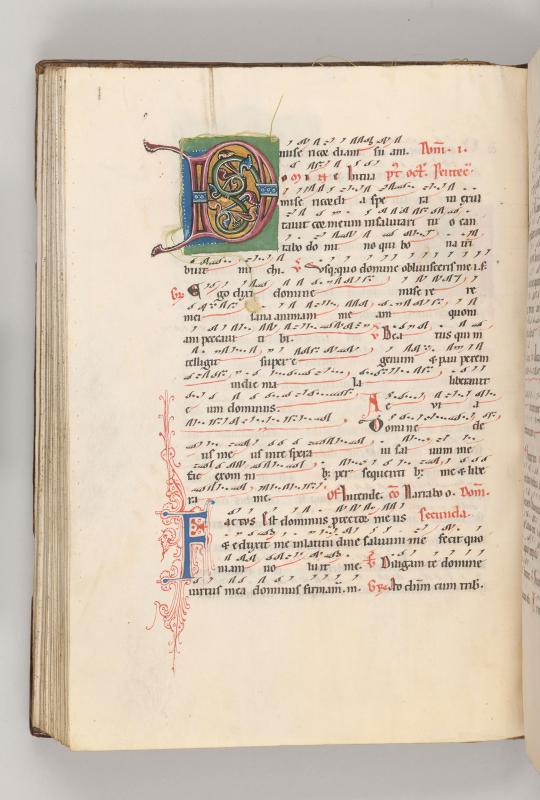 mise ricor diam su am. Dom̄. i.
omine Intua p't oct. Pentec̄.
mise ricordi a spe ra ui exul
tauit cor meum insalutari tu o can
tabo do mi no qui bo na tri
buit mi chi. V Usq;quo domine obliuisceris me i.f.
Gr. Ego dixi domine mise re re
mei sana animam me am quoni
am peccaui ti bi. V Bea tus qui in
telligit super e genum & pau perem
indie ma la liberauit
e um dominus. A e vi a
Domine de
us me us inte spera ui sal uum me
fac exom ni b; per sequenti b; me & libe
ra me. Of Intende. Co Narrabo o. Dom̄.
Factus est dominus protector me us secunda.
& eduxit me inlatitudine saluum me fecit quo
niam uo luit me. Diligam te domine
uirtus mea dominus firmam̄. m. Gr. Ad dn̄m cum trib.